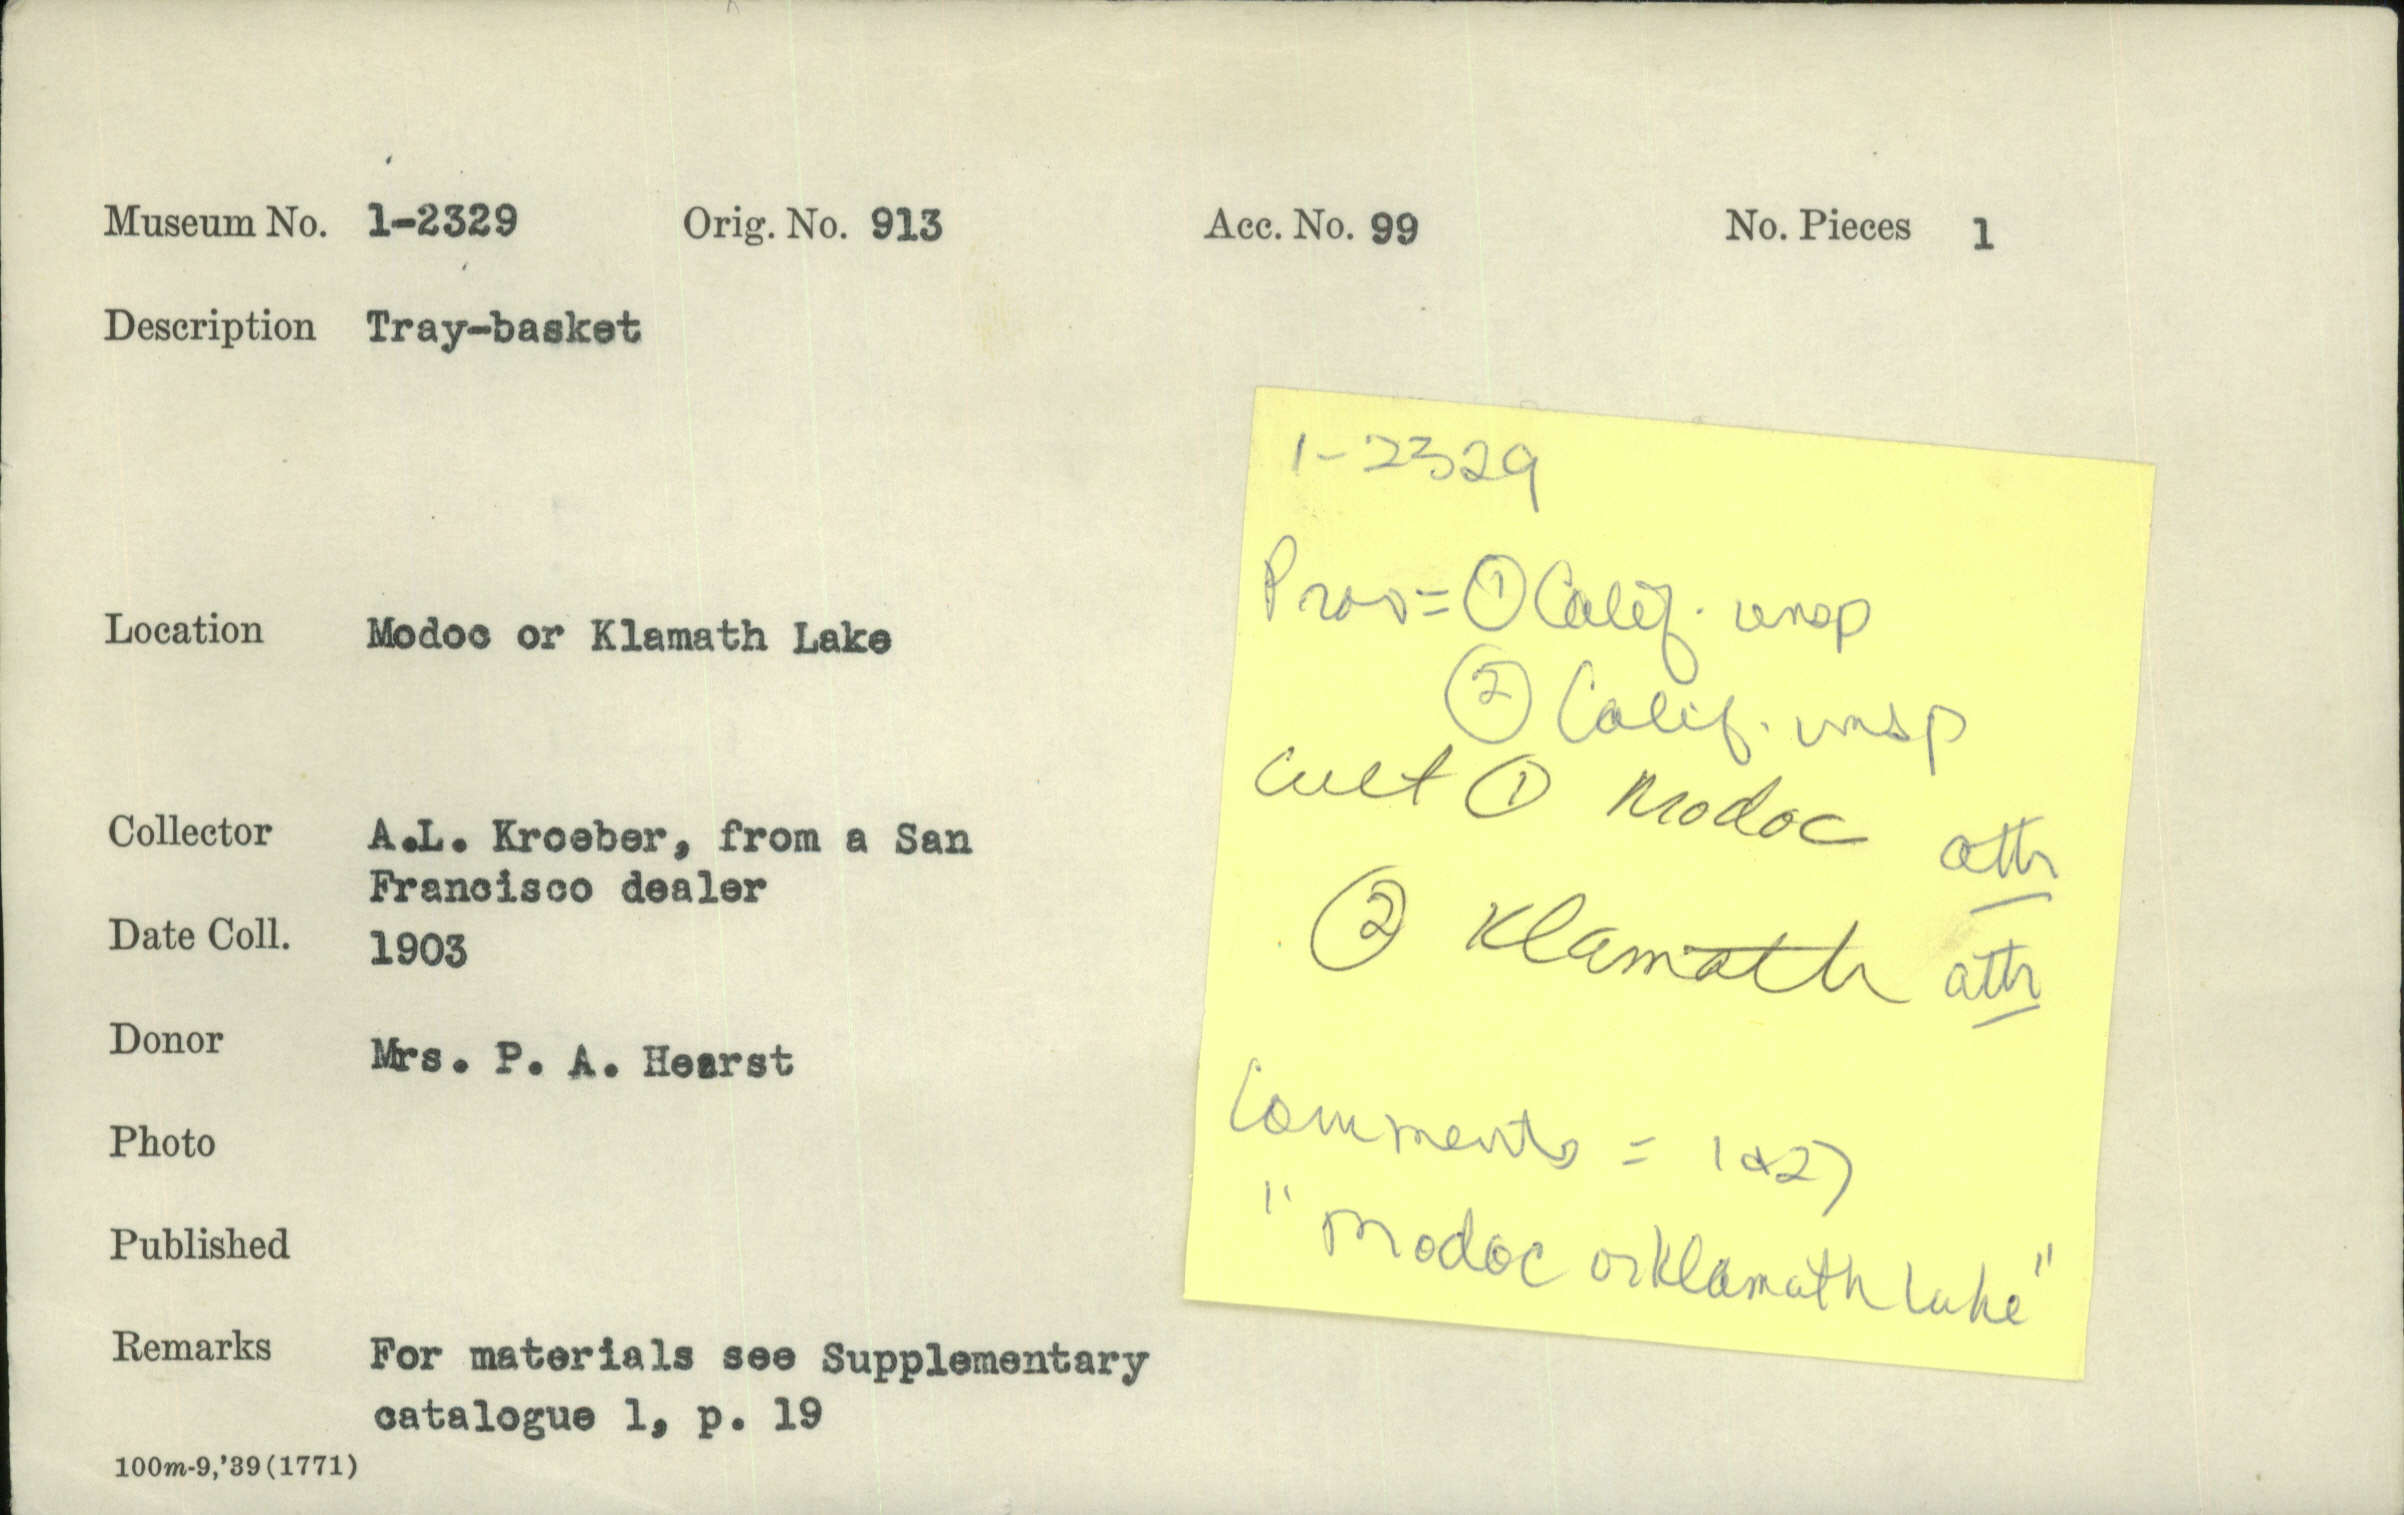 Museum No. 1-2329 Orig. No. 913 Acc. No. 99 No. Pieces 1
Description Tray-basket
Location Modoc or Klamath Lake
Collector A.L. Kroeber, from a San
Francisco dealer
Date Coll. 1903
Donor Mrs. P. A. Hearst
Photo
Published
Remarks For materials see Supplementary
catalogue 1, p. 19
100m-9,'39(1771)
1-2329
Prov = ① Calif. unsp
② Calif. unsp
Cult ① Modoc attr
② Klamath attr
Comments = 1&2)
"Modoc or Klamath Lake"